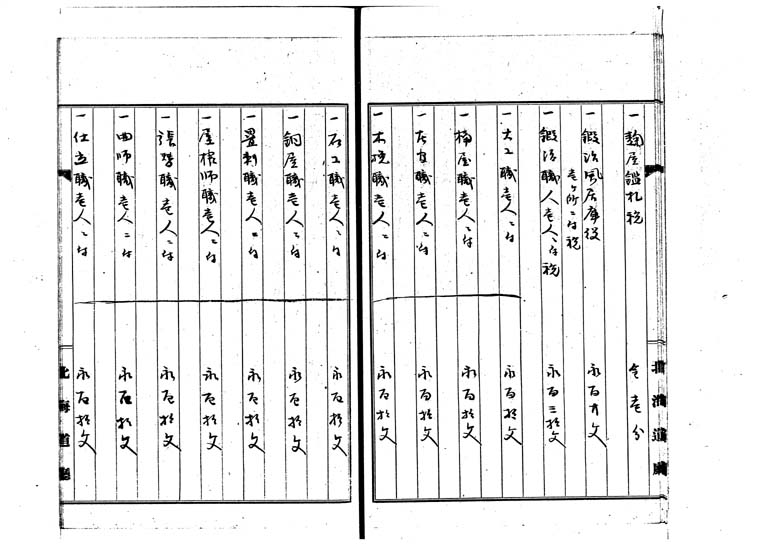 一 麹屋鑑札税 金壱分
一 鍛冶風居庫役 永百廿文
壱ヶ所ニ付税
一 鍛冶職人壱人ニ付税 永百三拾文
一 大工職壱人ニ付 永百拾文
一 桶屋職壱人ニ付 永百拾文
一 左官職壱人ニ付 永百拾文
一 木挽職壱人ニ付 永百拾文
北海道廳
一 石工職壱人ニ付 永百拾文
一 銅屋職壱人ニ付 永百拾文
一 畳刺職壱人ニ付 永百拾文
一 屋根師職壱人ニ付 永百拾文
一 張替職壱人ニ付 永百拾文
一 曲師職壱人ニ付 永百拾文
一 仕立職壱人ニ付 永百拾文
北海道廳